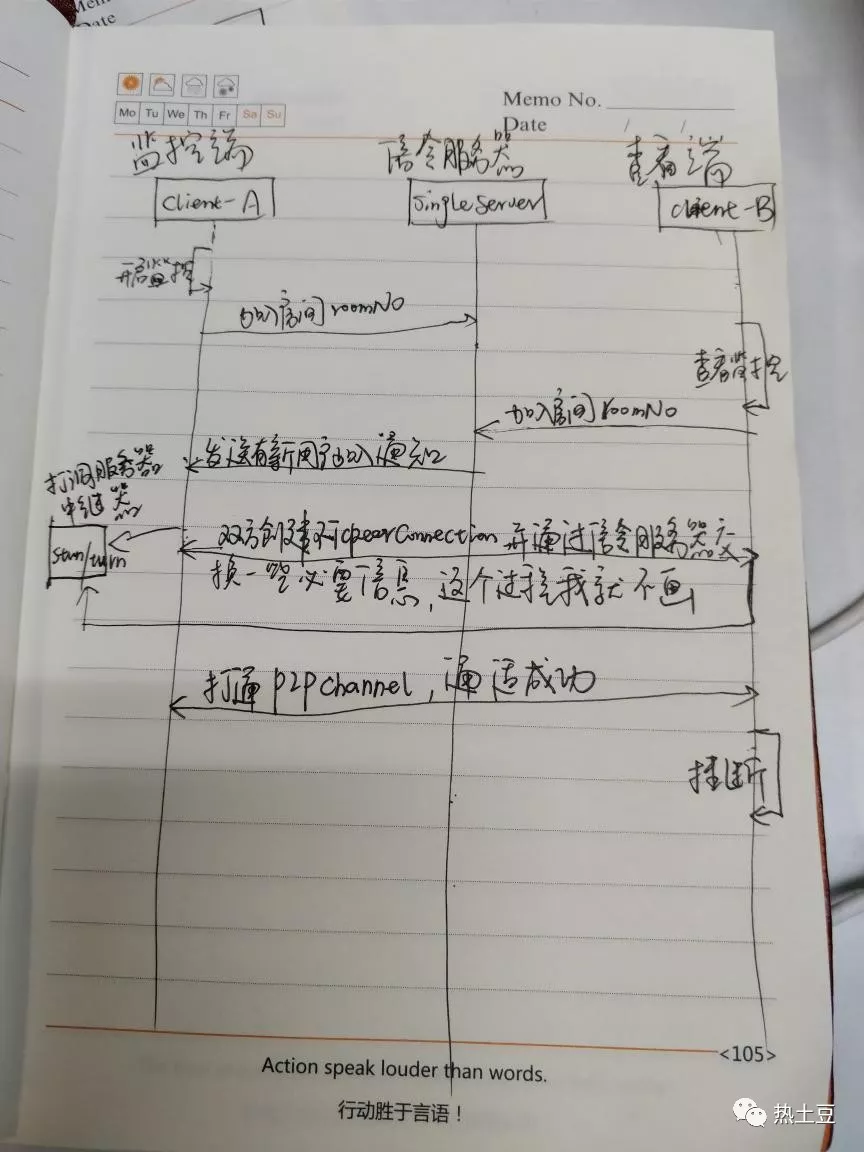 Date
Mo Tu We Th Fr Sa Su
Memo No.
Date
监控端
语令服务器
查看端
Client-A
SingleServer
Client-B
开启监控
加入房间roomNo
查看监控
加入房间roomNo
发送有新用户加入通知
打洞服务器
中继器
Stun/turn
双方创建rtcpeerConnection 并通过语令服务器交
换一些必要信息,这个过程我就不画
打通p2pchannel,通话成功
挂断
<105>
Action speak louder than words.
行动胜于言语!
热土豆